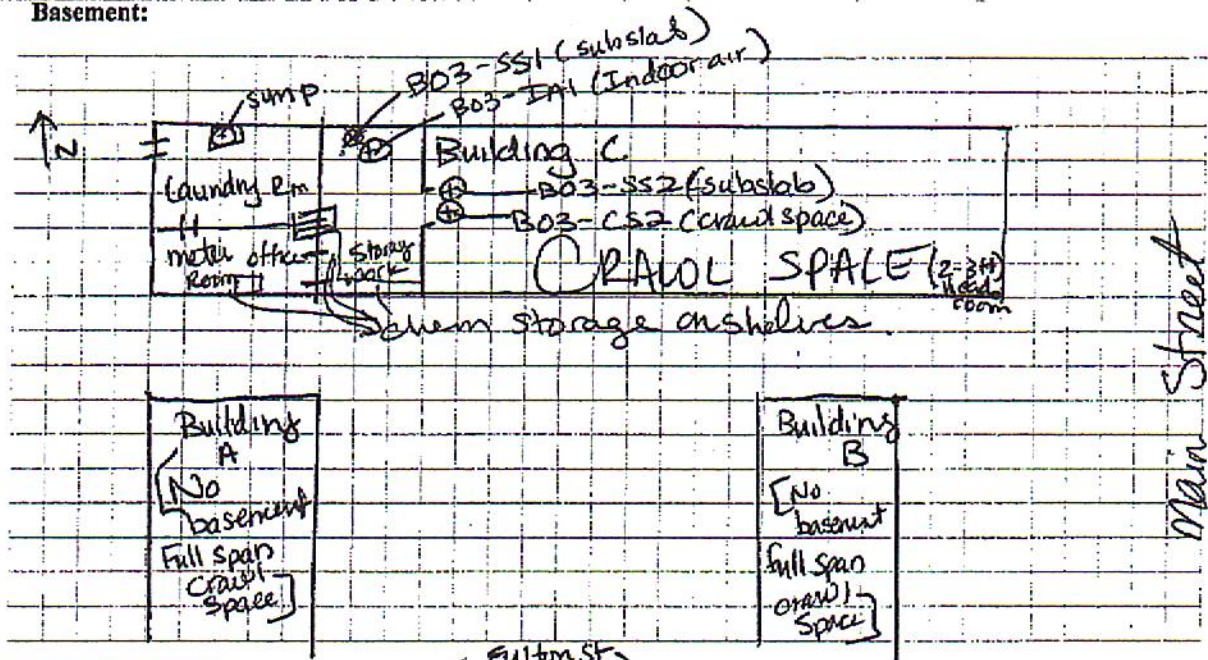 Basement:
B03-SS1 (subslab)
B03-IA1 (Indoor air)
sump
N
Building C
Laundry Rm
B03-SS2 (subslab)
B03-CS2 (crawl space)
meter
Room
office
CRAWL SPACE (2-3ft
head
room
chem storage on shelves.
Main Street
Building
A
[No
basement
Full span
crawl
space]
Building
B
[No
basement
full span
crawl
space]
Fulton St